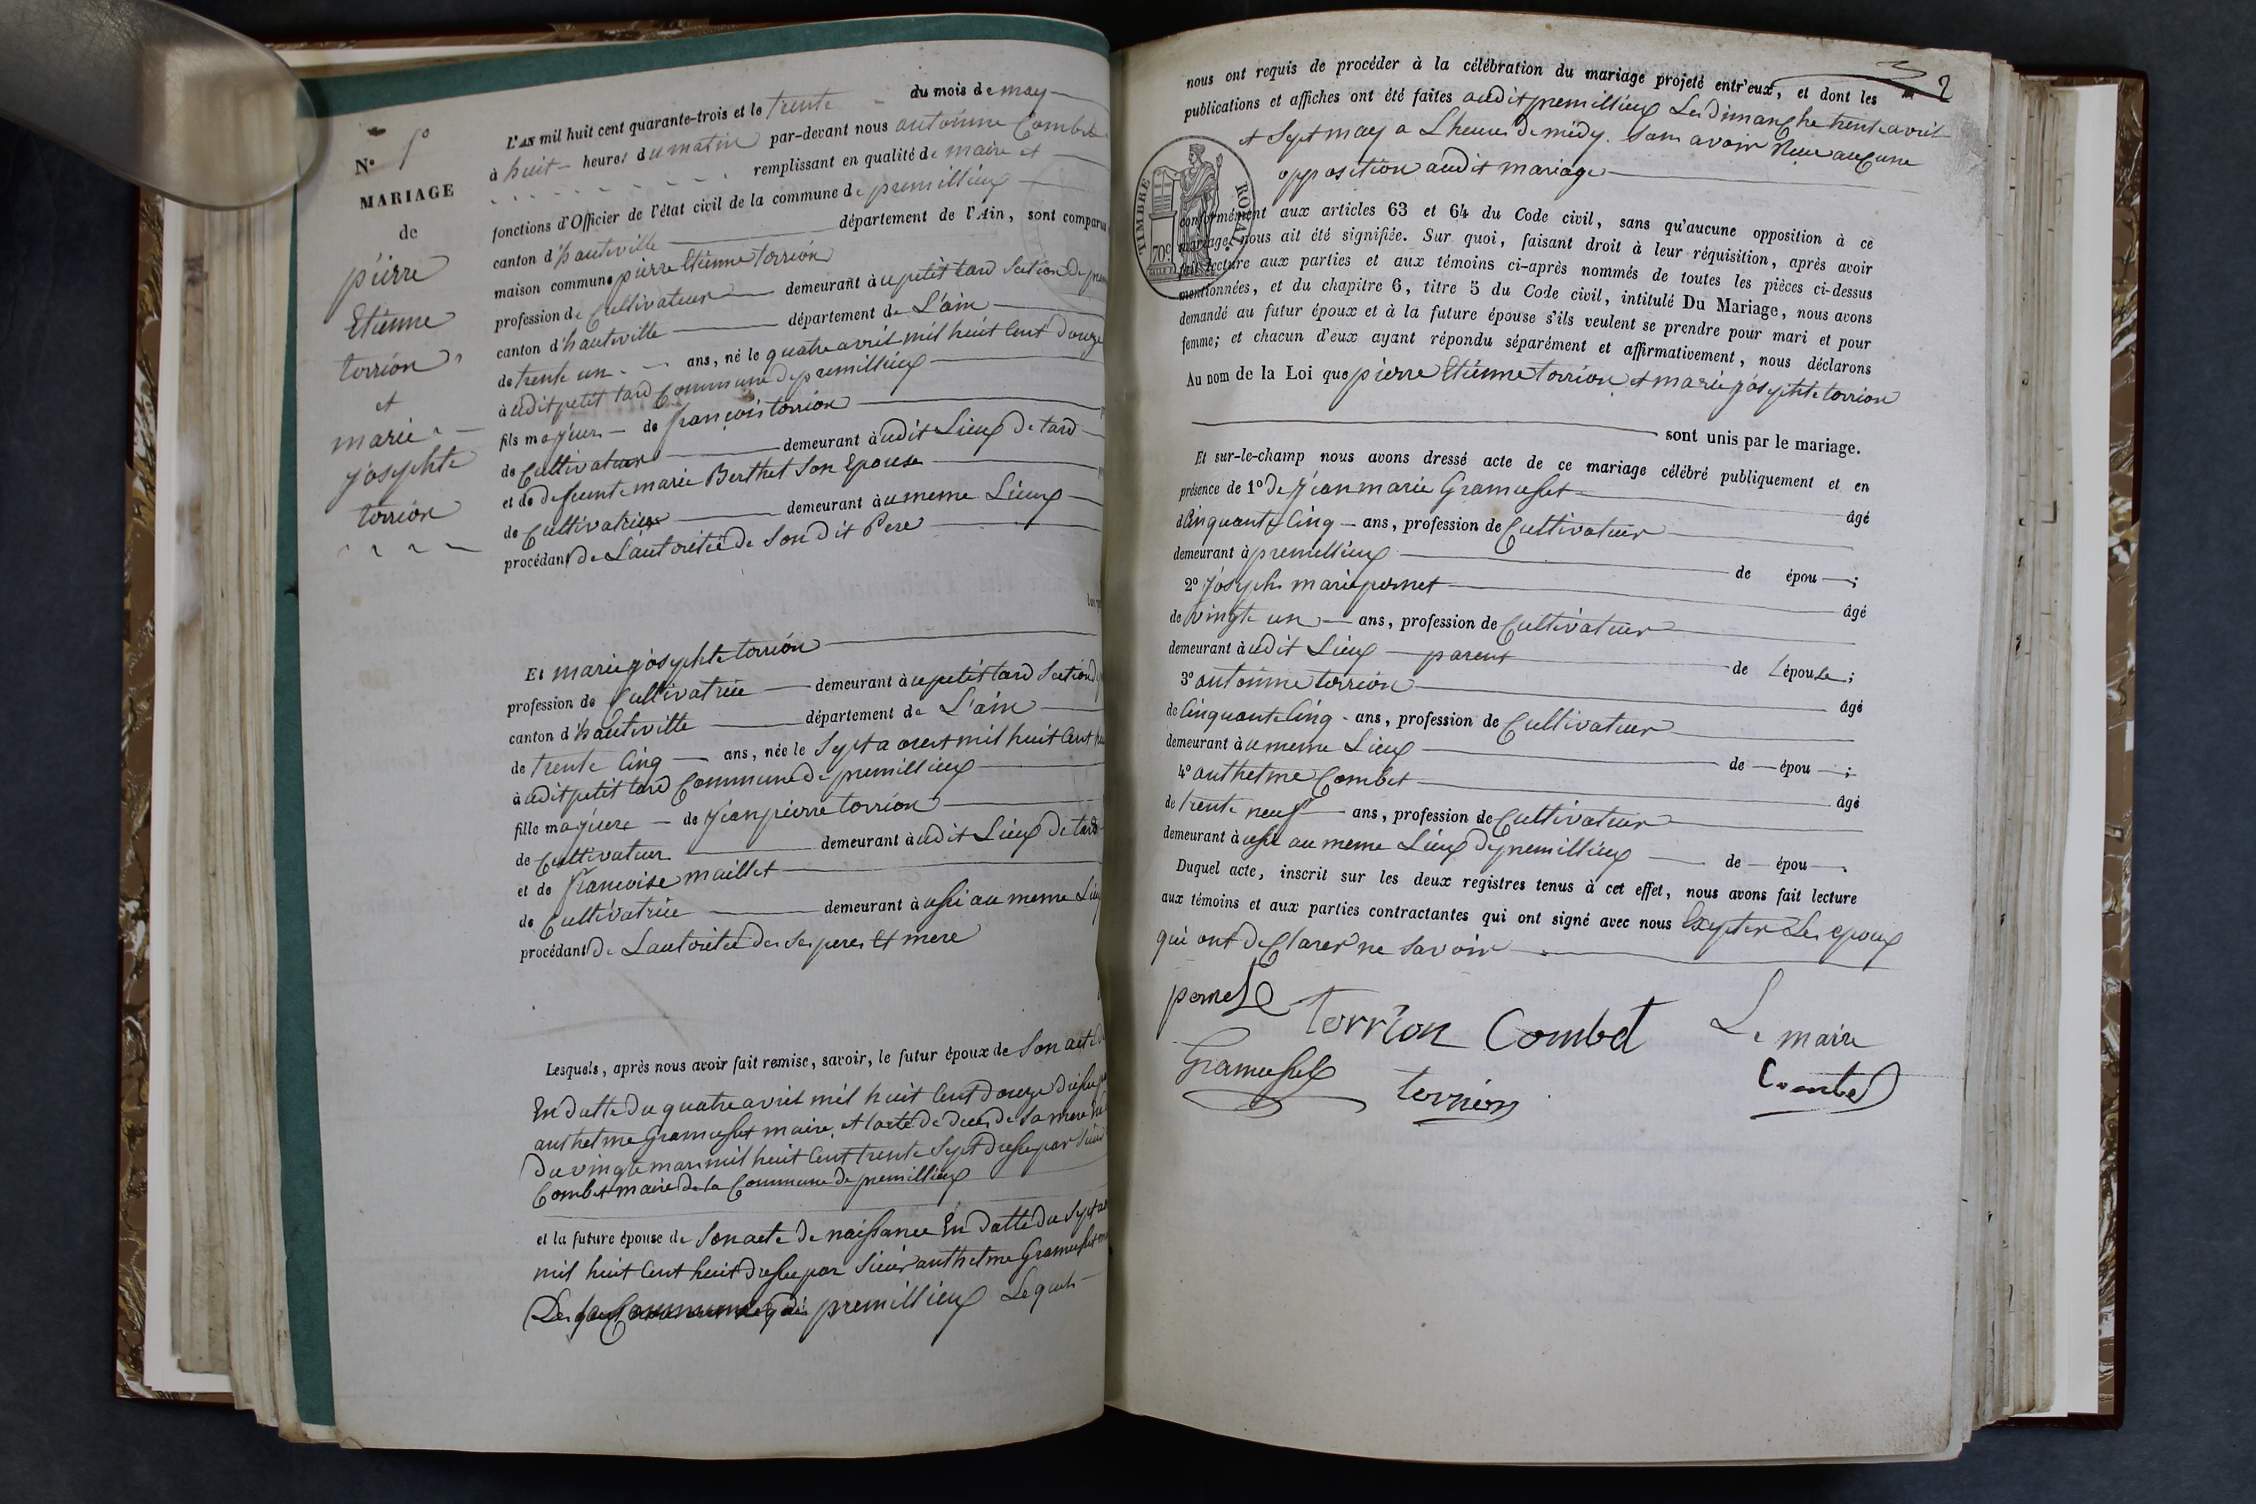 N° 1°
MARIAGE
de
pierre
Etienne
torrion
et
marie
josephte
torrion
L'AN mil huit cent quarante-trois et le trente du mois de may
à huit heures du matin par-devant nous antoinne Combet
remplissant en qualité de maire et
fonctions d'Officier de l'état civil de la commune de premillieux
canton d'hauteville département de l'Ain, sont comparus
maison commune pierre Etienne torrion
profession de Cultivateur demeurant à u petit tard Section de
canton d'hauteville département de L'ain
de trente un ans, né le quatre avril mil huit Cent douze
à udit petit tard Commune de premillieux
fils majeur de françois torrion
de Cultivateur demeurant à udit Lieux de tard
et de defeunte marie Berthet Son Epouse
de Cultivatrice demeurant à u meme Lieux
procédant de L'autoritée de Son dit Pere
Et marie josephte torrion
profession de Cultivatrice demeurant à u petit tard Section d
canton d'hauteville département de L'ain
de trente Cinq ans, née le Sept a oust mil huit Cent
à udit petit tard Commune de premillieux
fille majeure de jean pierre torrion
de Cultivateur demeurant à udit Lieux de tard
et de francoise maillet
de Cultivatrice demeurant à ussi au meme Lieux
procédant de Lautoritée des Ses peres Et mere
Lesquels, après nous avoir fait remise, savoir, le futur époux de Son acte
En datte du quatre avril mil huit Cent douze dressée
anthelme Gramusset maire, et lacte de deces de Sa mere
Du vingt mars mil huit Cent trente Sept dressé par Sieur
Combet maire de la Commune de premillieux
et la future épouse de Son acte de naissance En datte du Sept
mil huit Cent huit dressée par Sieur anthelme Gramusset
premillieux Lequels
2
nous ont requis de procéder à la célébration du mariage projeté entr'eux, et dont les
publications et affiches ont été faites audit premillieux Les dimanche trente avril
et Sept may a L'heure de midy. Sans avoir Recue auCune
opposition audit mariage
TIMBRE ROYAL
70c
conformément aux articles 63 et 64 du Code civil, sans qu'aucune opposition à ce
mariage nous ait été signifiée. Sur quoi, faisant droit à leur réquisition, après avoir
fait lecture aux parties et aux témoins ci-après nommés de toutes les pièces ci-dessus
mentionnées, et du chapitre 6, titre 5 du Code civil, intitulé Du Mariage, nous avons
demandé au futur époux et à la future épouse s'ils veulent se prendre pour mari et pour
femme; et chacun d'eux ayant répondu séparément et affirmativement, nous déclarons
Au nom de la Loi que pierre Etienne torrion et marie josephte torrion
sont unis par le mariage.
Et sur-le-champ nous avons dressé acte de ce mariage célébré publiquement et en
présence de 1° De jean marie Gramusset âgé
d Cinquante Cinq ans, profession de Cultivateur
demeurant à premillieux de épou ;
2° joseph marie pernet âgé
de vingt un ans, profession de Cultivateur
demeurant à udit Lieux parent de L'épouse ;
3° antoinne torrion âgé
de Cinquante Cinq ans, profession de Cultivateur
demeurant à u meme Lieux de épou ;
4° anthelme Combet âgé
de trente neuf ans, profession de Cultivateur
demeurant à ussi au meme Lieux de premillieux de épou .
Duquel acte, inscrit sur les deux registres tenus à cet effet, nous avons fait lecture
aux témoins et aux parties contractantes qui ont signé avec nous Exepter Les epoux
qui ont deClarer ne Savoir
pernet torrion Combet Le maire
Gramusset torrion Combet